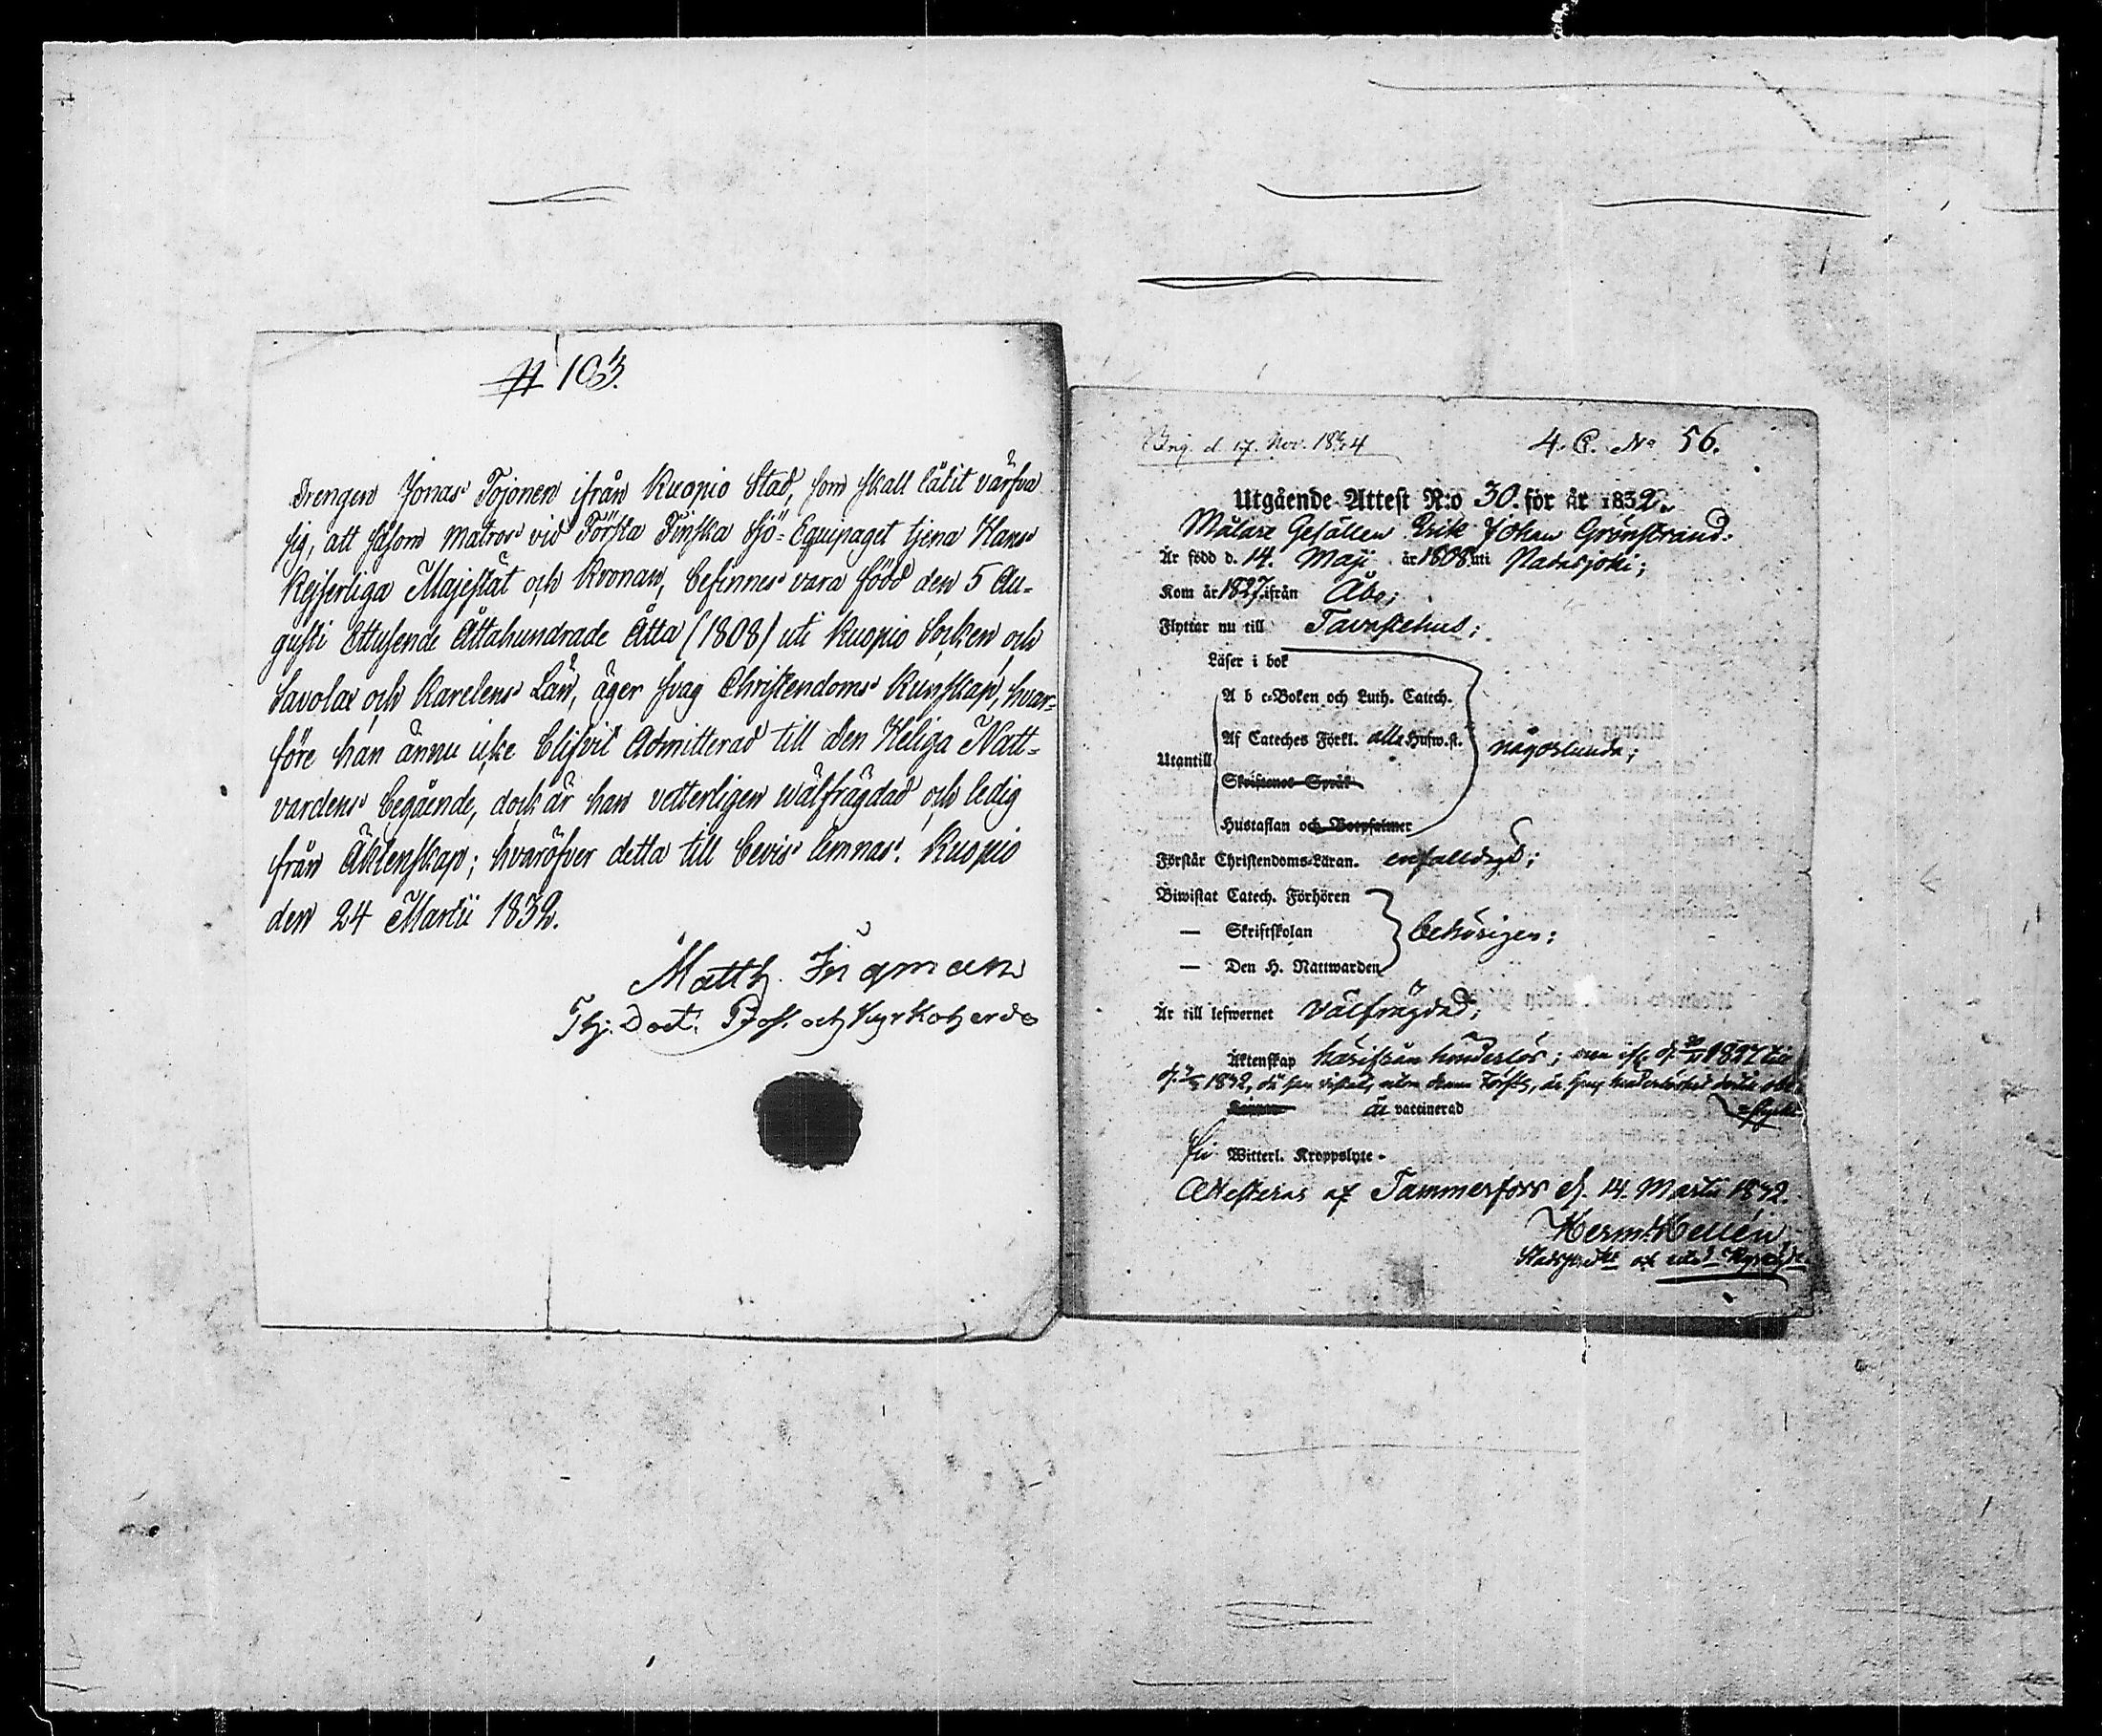 # 103.
Drengen Jonas Tojonen ifrån Kuopio Stad, som skall låtit värfva
sig, att såsom Matros vid Första Finska Sjö-Equipaget tjena Hans
Kejserliga Majestät och Kronan, befinnes vara född den 5 Au-
gusti Ettusende Åttahundrade Åtta (1808) uti Kuopio Socken och
Savolax och Karelens Län, äger svag Christendoms Kunskap, hvar-
före han ännu icke blifvit Admitterad till den Heliga Natt-
vardens begående, dock är han vetterligen wälfrägdad och ledig
från Äktenskap; hvaröfver detta till bevis lemnas. Kuopio
den 24 Martii 1832.
Matth. Ingman
Th. Doct. Prof. och Kyrkoherde
Ing. d. 17. Nov. 1834
4. C. No 56.
Utgående Attest N:o 30. för år 1832.
Målare Gesällen Erik Johan Grönstrand.
Är född d. 14. Maji år 1808 uti
Kom år 1827 ifrån Åbo;
Flyttar nu till Tavastehus;
Läser i bok
A b c-Boken och Luth. Catech.
Af Cateches Förkl. alla Hufw.st. någorlunda;
Utantill
Skriftenes Språk
Hustaflan och Botpsalmer
Förstår Christendoms-Läran. enfalldigt;
Biwistat Catech. Förhören
— Skriftskolan behörigen;
— Den H. Nattwarden
Är till lefwernet välfrägdad;
Äktenskap härifrån hinderlös; 1827 till
1832, då han
är vaccinerad
Witterl. Kroppslyte -
Attesteras af Tammerfors d. 14. Martii 1832.
Herm. Hellén